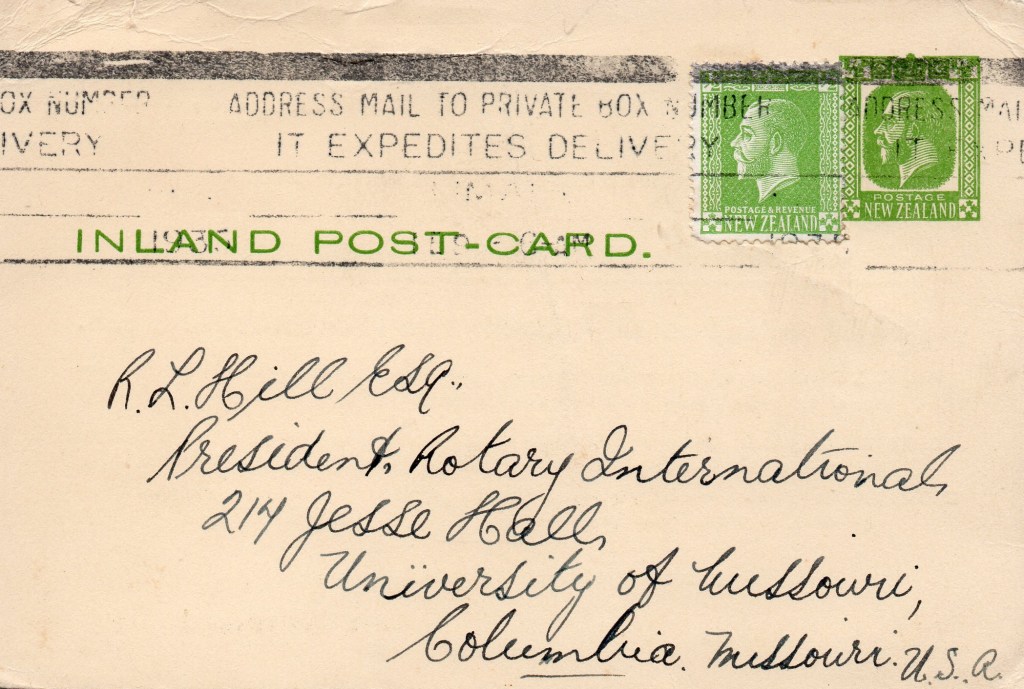 OX NUMBER ADDRESS MAIL TO PRIVATE BOX NUMBER ADDRESS MAI
IVERY IT EXPEDITES DELIVERY IT EXPE
POSTAGE & REVENUE
NEW ZEALAND
POSTAGE
NEW ZEALAND
INLAND POST-CARD.
R. L. Hill Esq.,
President, Rotary International,
214 Jesse Hall,
University of Missouri,
Columbia. Missouri. U.S.A.